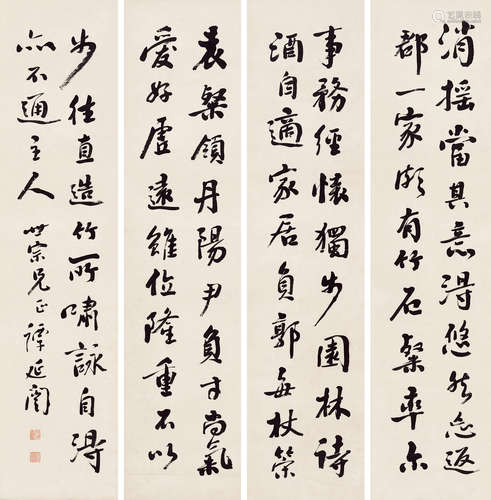 消摇當其意得悠然忘返
郡一家頗有竹石粲率尔
事務經懷獨步園林詩
酒自適家居負郭每杖策
袁粲領丹陽尹負才尚氣
愛好虛遠雖位隆重不以
步往直造竹所嘯詠自得
亦不通主人
世宗兄正譚延闓